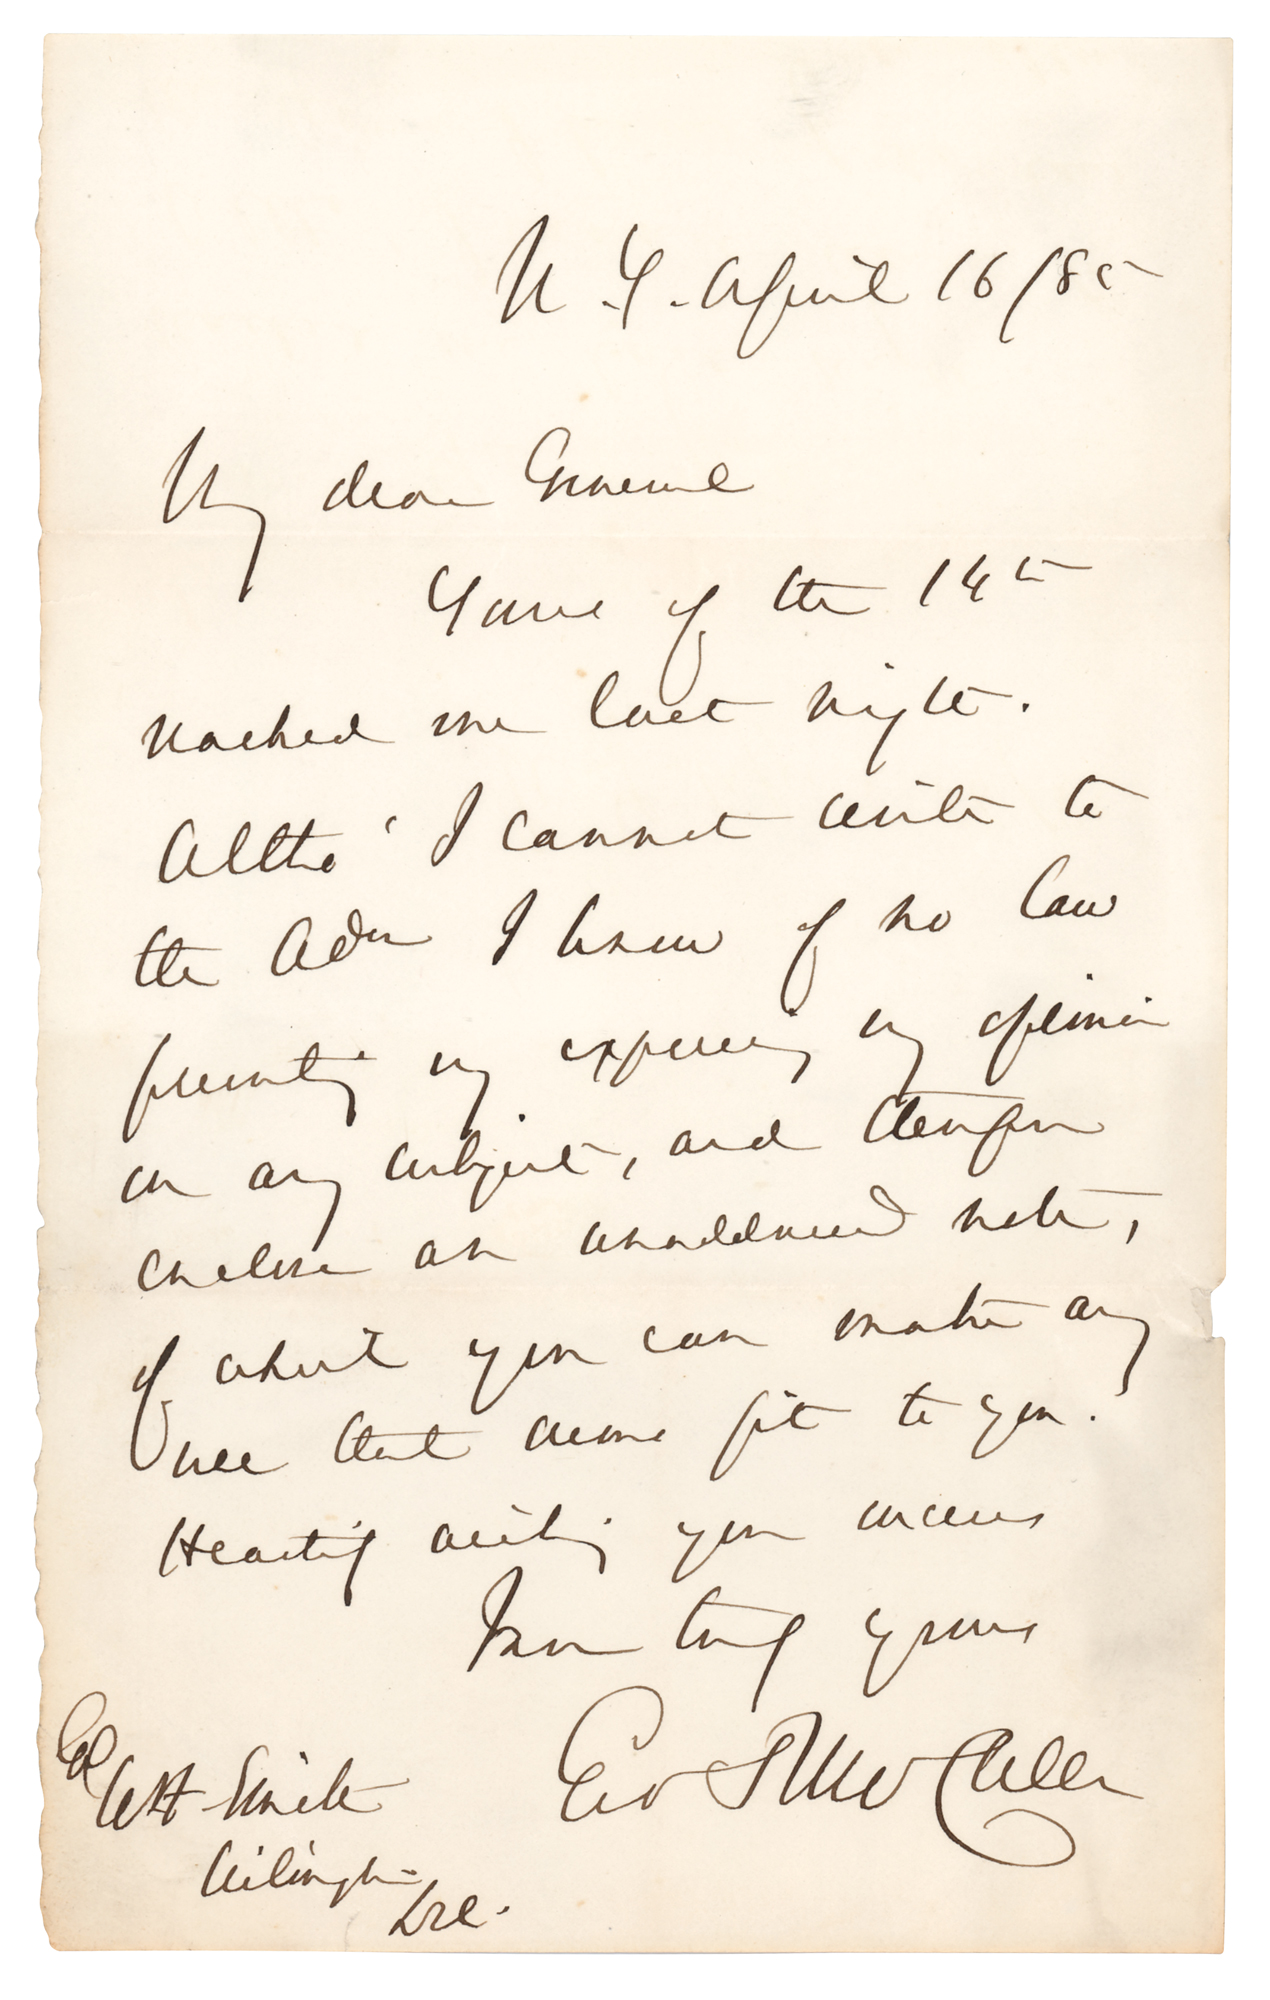 N.Y. April 16/85
My dear General
Yours of the 14th
reached me last night.
Altho' I cannot write to
the Adm I know of no law
preventing my expressing my opinion
on any subject, and therefore
enclose an unaddressed note,
of which you can make any
use that seems fit to you.
Heartily wishing you success
I am truly yours
Geo B McClellan
Gl
WH Smith
Wilmington
Del.